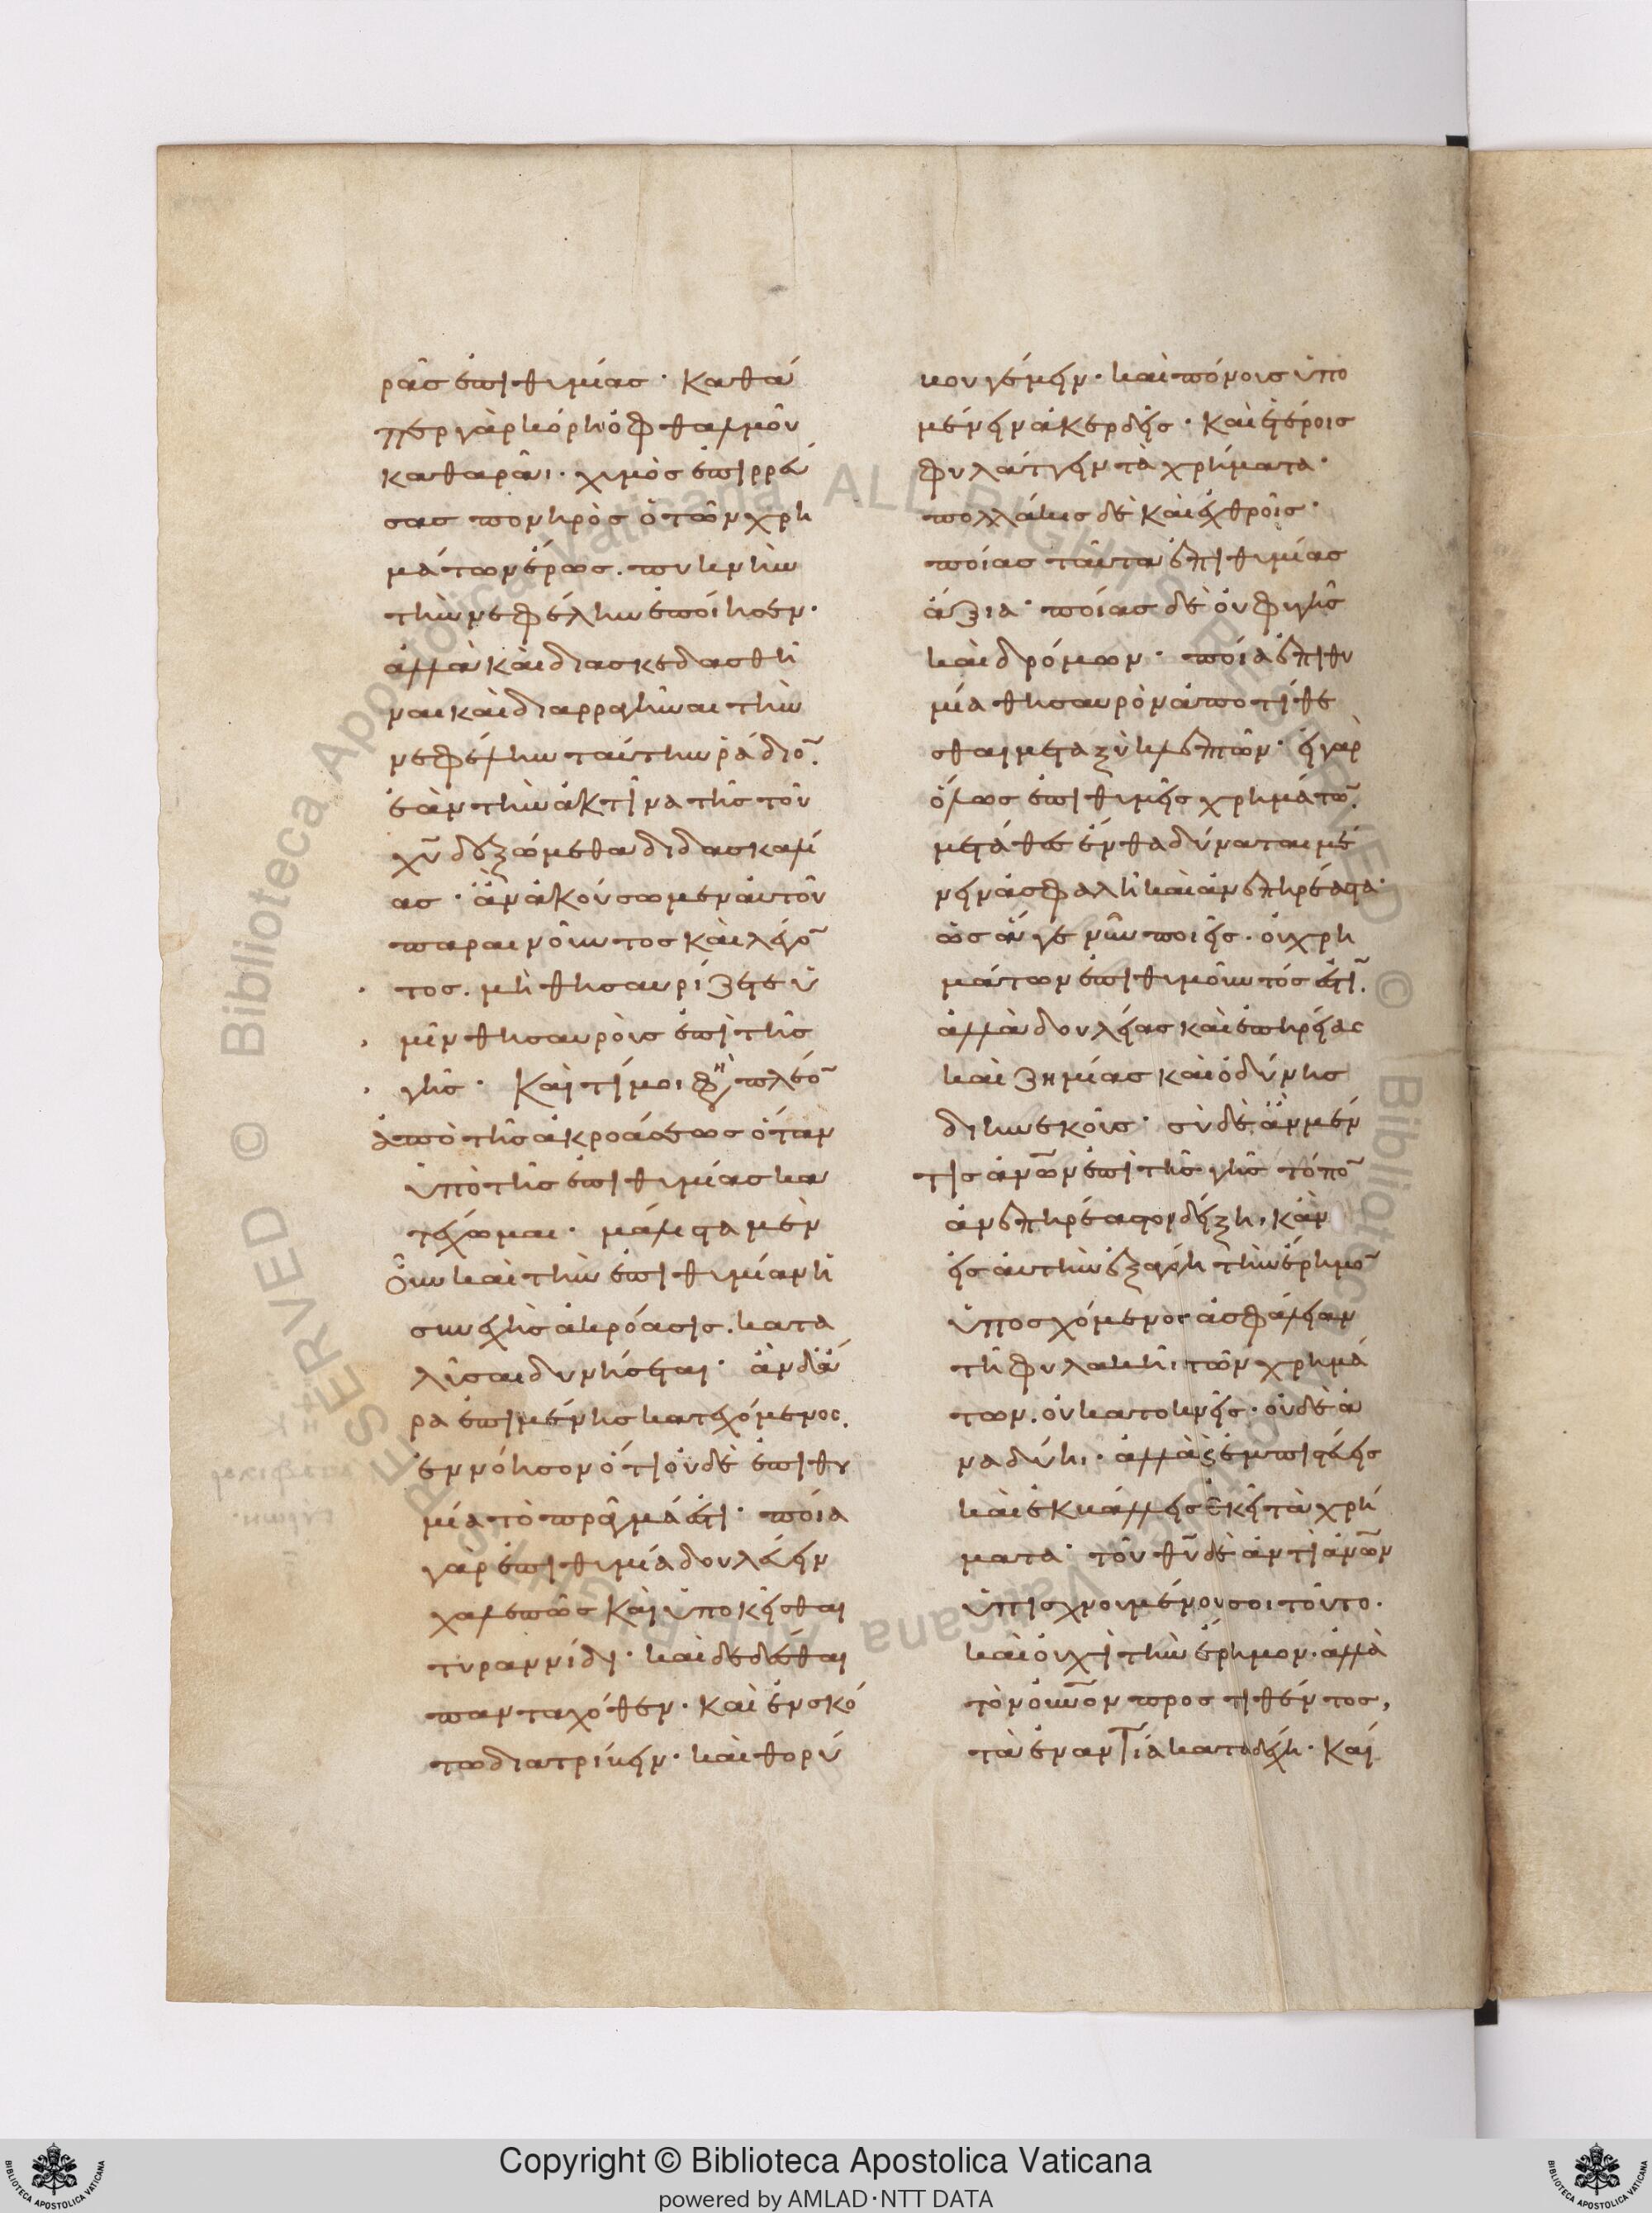 ρᾶς ἐπιθυμίας· Καθά
περ γὰρ κόρηι ὀφθαλμοῦ
καθαρᾶι· χυμὸς ἐπιρρεύ
σας πονηρὸς ὁ τῶν χρη
μάτων ἔρως. πυκνὴν
τὴν νεφέλην ἐποίησεν·
ἀλλὰ καὶ διασκεδασθῆ
ναι καὶ διαρραγῆναι τὴν
νεφέλην ταύτην ῥάδιο̅.
ἐὰν τὴν ἀκτῖνα τῆς τοῦ
χυ̅ δεξώμεθα διδασκαλί
ας· ἂν ἀκούσωμεν αὐτοῦ
παραινοῦντος καὶ λέγο̅
τος. μὴ θησαυρίζετε ὑ
μῖν θησαυροὺς ἐπὶ τῆς
γῆς· Καὶ τί μοι φη πλέο̅
ἀπὸ τῆς ἀκροάσεως ὅταν
ὑπὸ τῆς ἐπιθυμίας κα
τέχωμαι· μάλιστα μὲν
οὖν καὶ τὴν ἐπιθυμίαν ἡ
συνεχὴς ἀκρόασις. κατα
λῦσαι δυνήσεται· ἂν δ' ἄ
ρα ἐπιμένηις κατεχόμενος.
ἐννόησον ὅτι οὐδὲ ἐπιθυ
μία τὸ πρᾶγμά ἐστι· ποία
γὰρ ἐπιθυμία δουλεύειν
χαλεπῶς καὶ ὑποκεῖσθαι
τυραννίδι· καὶ δεδέσθαι
πανταχόθεν· καὶ ἐν σκό
τω διατρίβειν· καὶ θορύ
βου γέμειν· καὶ πόνους ὑπο
μένειν ἀκερδεῖς· καὶ ἑτέροις
φυλάττειν τὰ χρήματα·
πολλάκις δὲ καὶ ἐχθροῖς·
ποίας ταῦτα ἐπιθυμίας
ἄξια· ποίας δὲ οὐ φυγῆς
καὶ δρόμων· ποία ἐπιθυ
μία θησαυρὸν ἀποτίθε
σθαι μεταξὺ κλεπτῶν· εἰ γὰρ
ὅλως ἐπιθυμεῖς χρημάτω̅.
μετάθες ἔνθα δύναται μέ
νειν ἀσφαλῆ καὶ ἀνεπηρέαστα·
ὡς ἅ γε νῦν ποιεῖς. οὐ χρη
μάτων ἐπιθυμοῦντός ἐστι̅.
ἀλλὰ δουλείας καὶ ἐπηρείας
καὶ ζημίας καὶ ὀδύνης
διηνεκοῦς· σὺ δὲ ἂν μέν
τις ἀνω̅ν ἐπὶ τῆς γῆς τόπο̅
ἀνεπηρέαστον δείξη, κἂν
εἰς αὐτὴν ἐξαγάγη τὴν ἔρημο̅
ὑποσχόμενος ἀσφάλειαν
τῆ φυλακῆι τῶν χρημά
των. οὐ κατοκνεῖς· οὐδὲ ἀ
ναδύηι· ἀλλὰ
καὶ ἐκβάλλεις ἐκεῖ τὰ χρή
ματα· τοῦ θυ̅ δὲ ἀντὶ ἀνω̅ν
ὑπισχνουμένου σοι τοῦτο.
καὶ οὐχὶ τὴν ἔρημον. ἀλλὰ
τὸν οὐνο̅ν προστιθέντος,
τὰ ἐναντία καταδέχη· Καὶ